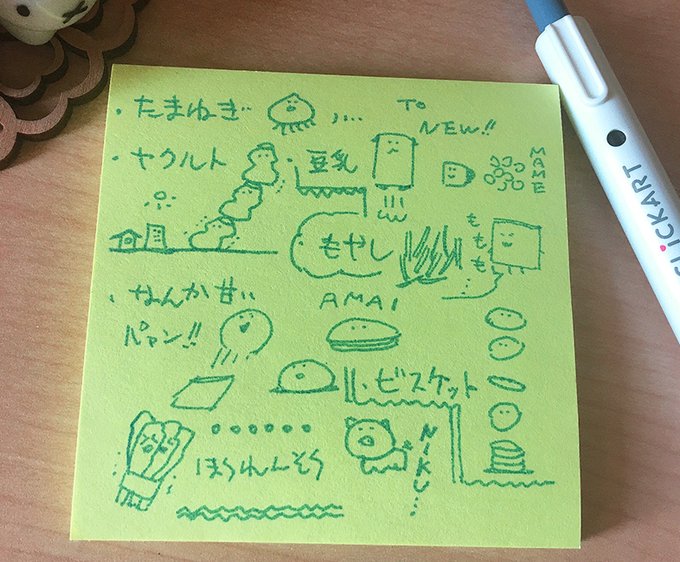 ・たまねぎ ,...
TO
NEW!!
・ヤクルト
・豆乳
MAME
もやし
ももも
・なんか甘い
パァン!!
AMAI
・ビスケット
ほうれんそう
NIKU...
CLiCKART